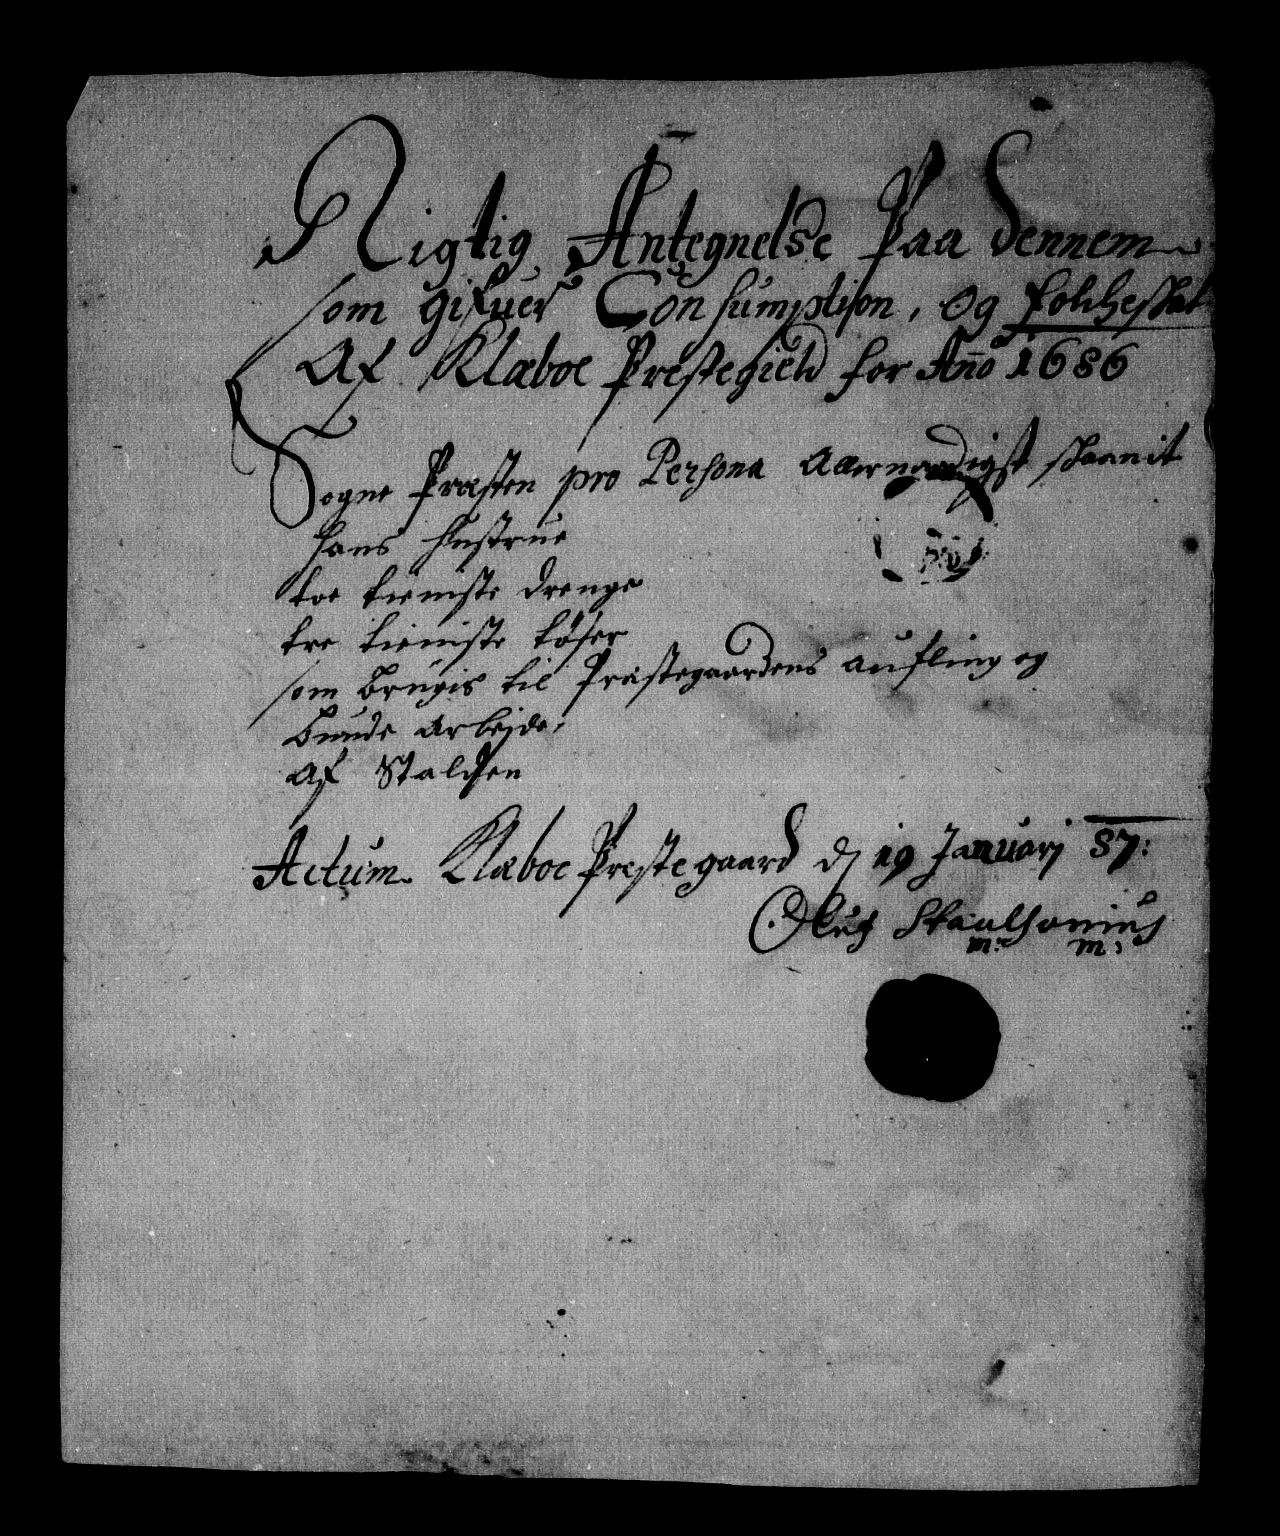 Rigtig Antegnelse Paa dennem
som gifuer Consumption, Og folcheskat
Af Klæboe Prestegield for Año 1686
Sogne Præsten pro Persona Allernaadigst skaanit
Hans Hustrue
toe tieniste drenge
tre tieniste tøser
som brugis til Præstegaardens aufling og
bunde arbejde,
Af Stalden
Actum Klæboe Prestegaard dj 19 Januarj 87:
Oluf
m: m: